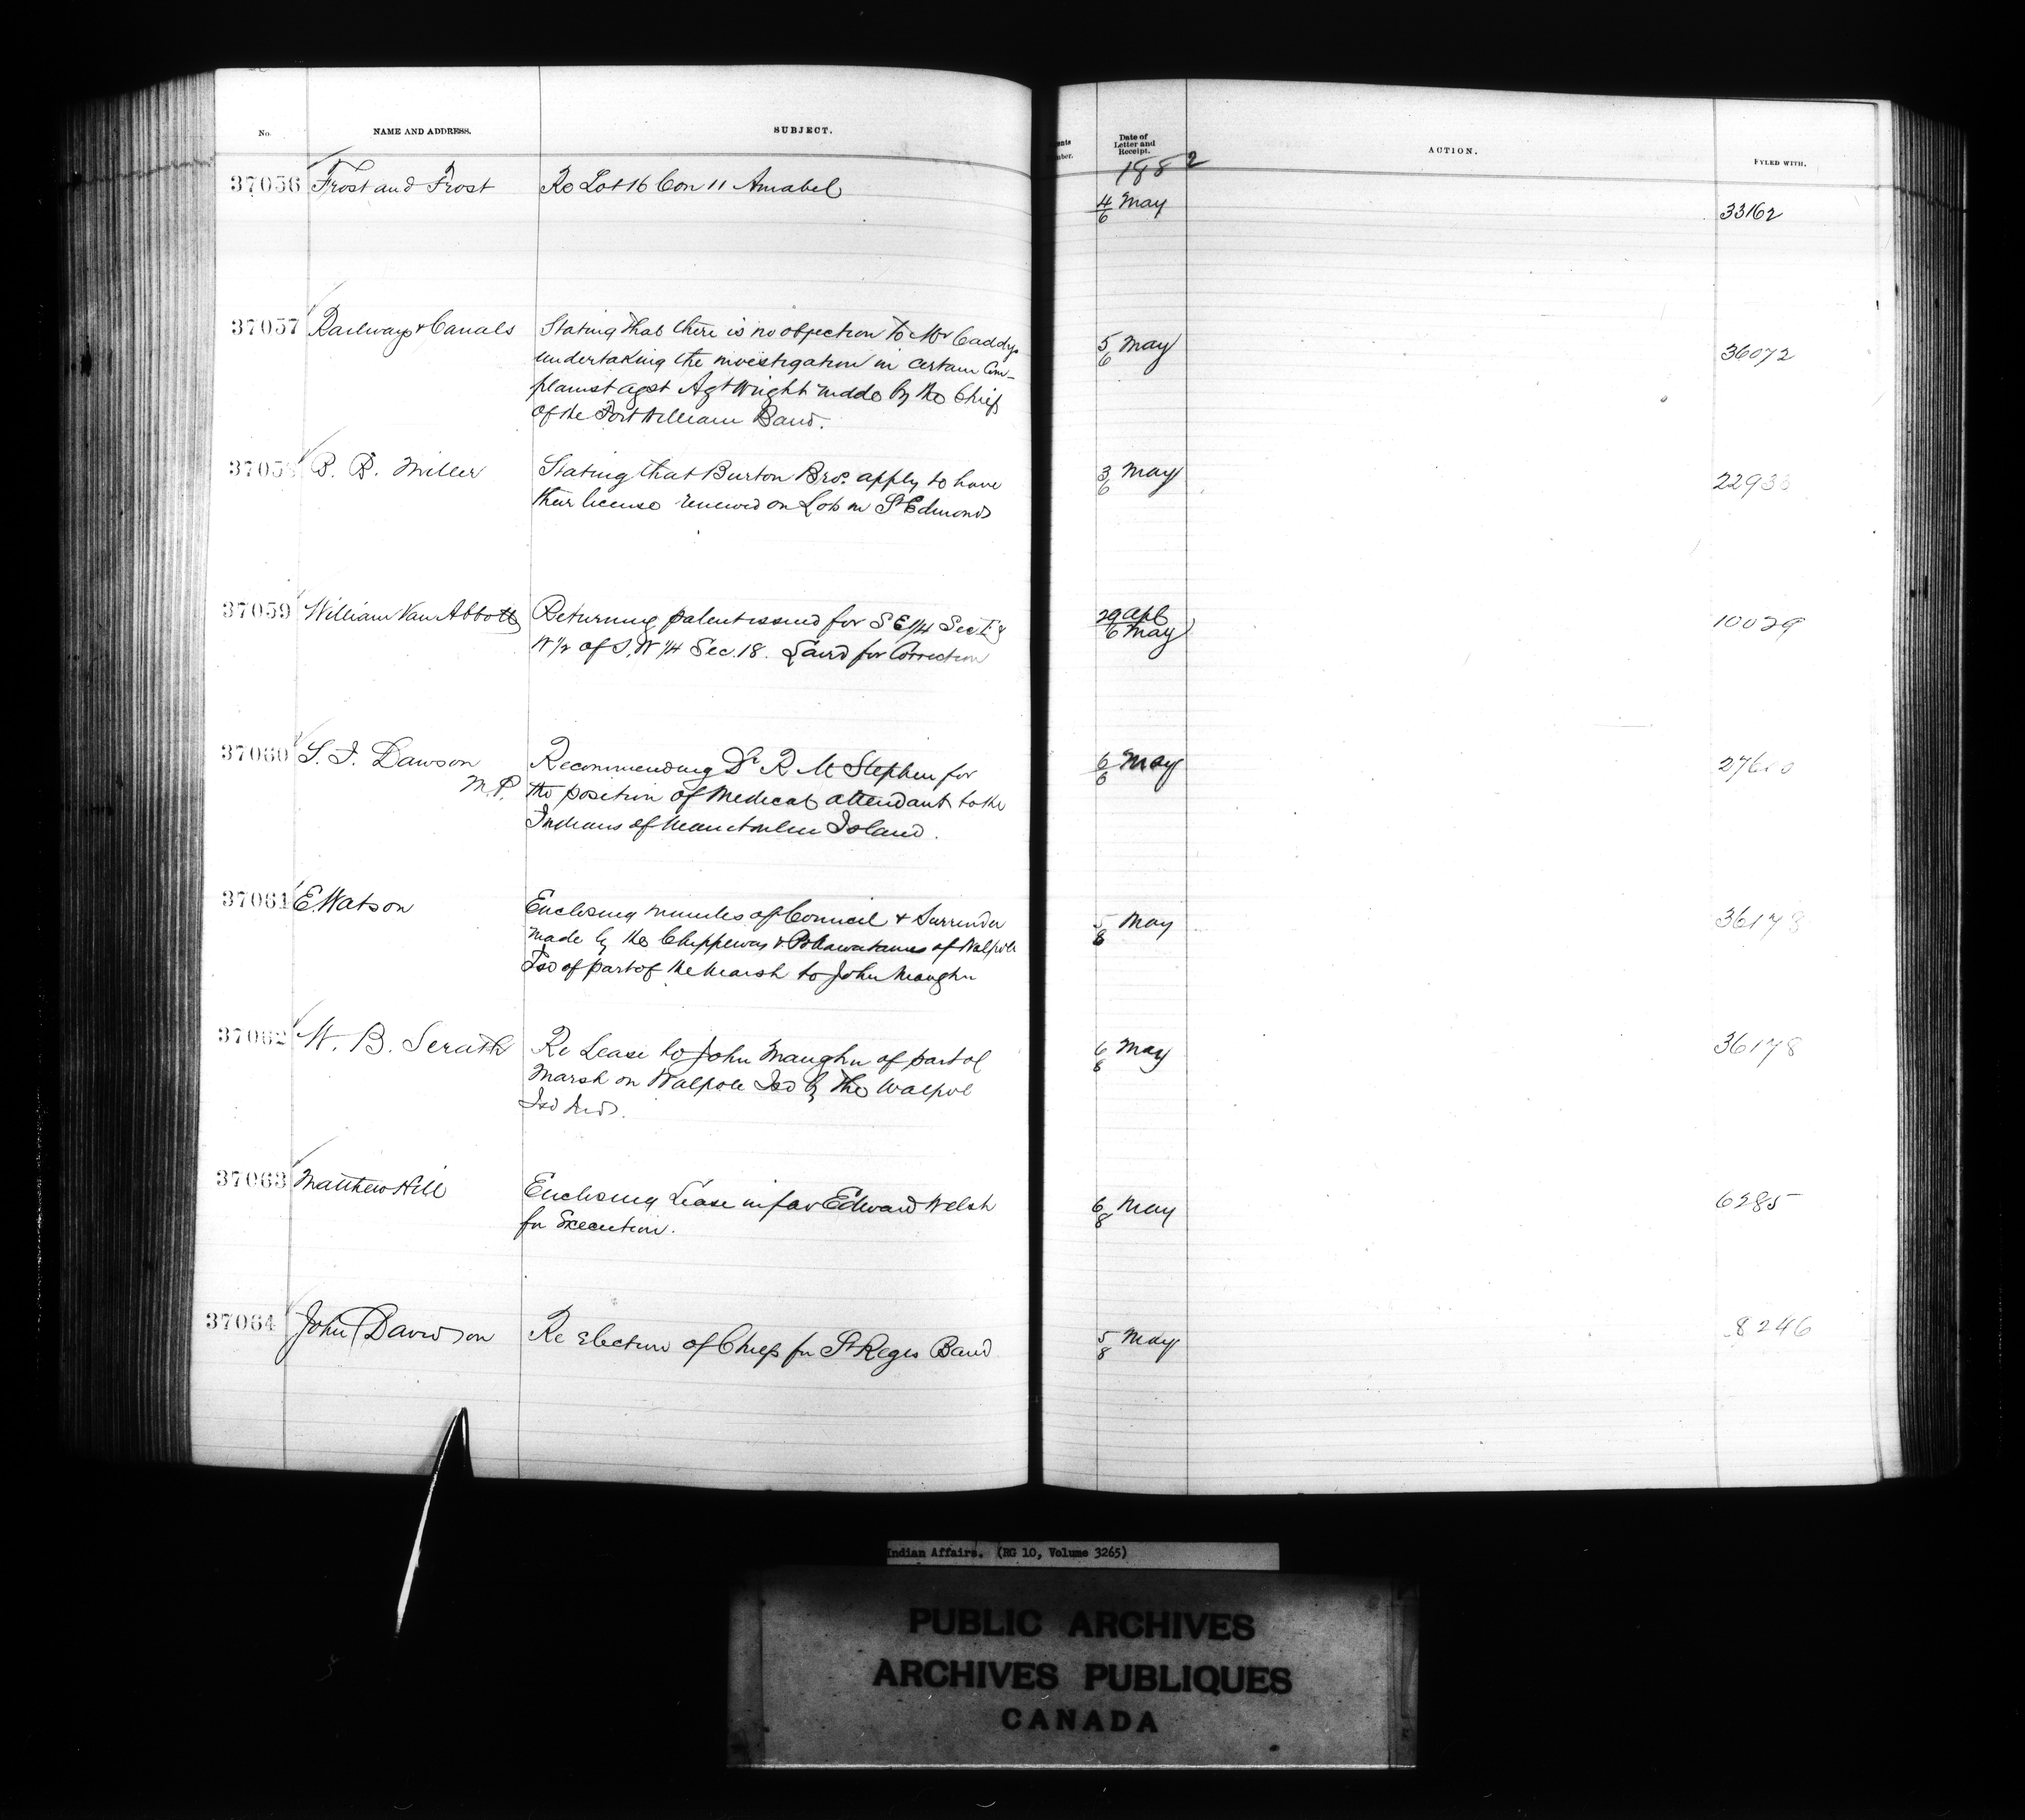 No. NAME AND ADDRESS. SUBJECT. Date of Letter and Receipt. ACTION. FYLED WITH.
1882
37056 Frost and Frost Re Lot 16 Con 11 Amabel 4/6 May 33162
37057 Railways & Canals Stating that there is no objection to Mr Caddys 5/6 May 36072
undertaking the investigation in certain Com-
plainst agst Agt Wright made by the Chief
of the Fort William Band.
37058 B. B. Miller Stating that Burton Bros. apply to have 3/6 May
their license renewed on Lots in St Edmonds
37059 William Van Abbott Returning patent issued for S E 1/4 Sec 29 Apl
W 1/2 of S.W 1/4 Sec. 18. Laird for Correction 6 May 10029
37060 S. J. Dawson Recommending Dr R. M. Stephen for 6/6 May
M.P. the position of Medical attendant to the
Indians of Manitoulin Island.
37061 E Watson Enclosing minutes of Council & Surrender 5/8 May 36178
made by the Chippewas & Pottawatamies of Walpole
Isd of part of the Marsh to John Maughn
37062 W. B. Serath Re Lease to John Maughn of part of 6/8 May 36178
Marsh on Walpole Isd by the Walpol
Isd Inds.
37063 Matthew Hill Enclosing Lease in fav Edward Welsh 6/8 May 6285
for Execution.
37064 John Davidson Re Election of Chiefs for St Regis Band 5/8 May 8246
Indian Affairs. (RG 10, Volume 3265)
PUBLIC ARCHIVES
ARCHIVES PUBLIQUES
CANADA